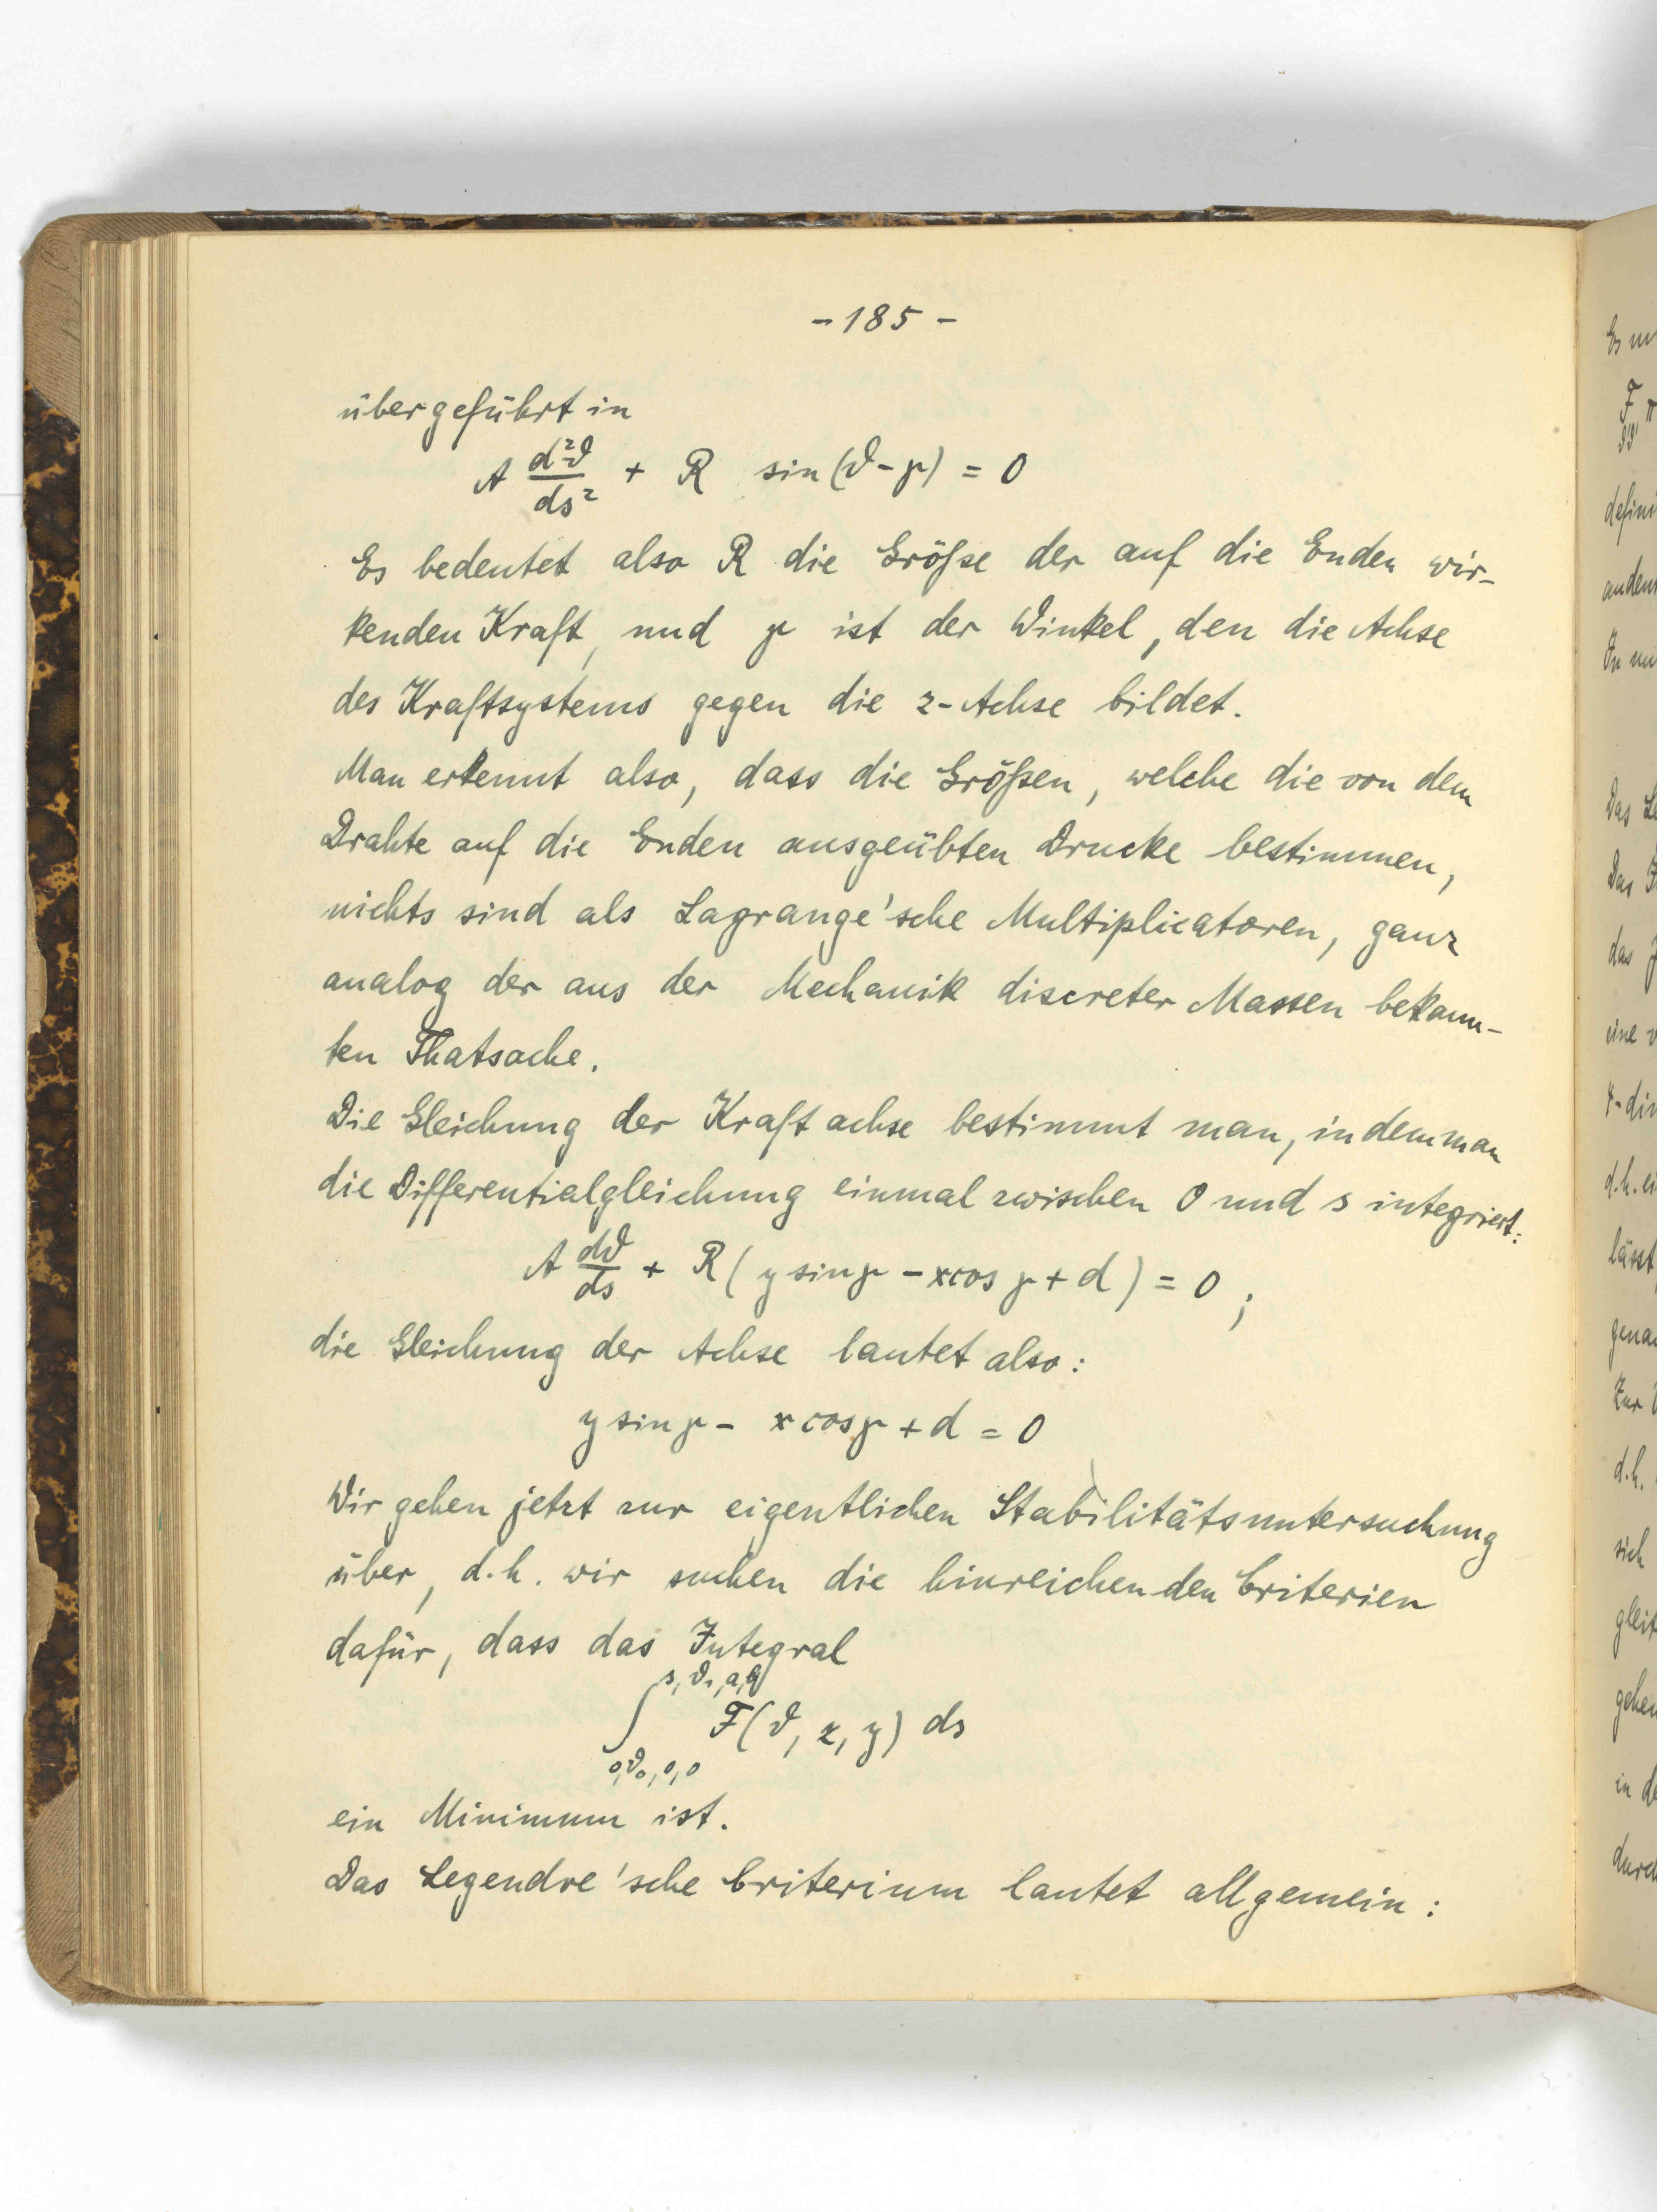 - 185 -
übergeführt in
A d²ϑ/ds² + R sin (ϑ - μ) = 0
Es bedeutet also R die Größe der auf die Enden wir-
kenden Kraft, und μ ist der Winkel, den die Achse
des Kraftsystems gegen die z-Achse bildet.
Man erkennt also, dass die Größen, welche die von dem
Drahte auf die Enden ausgeübten Drucke bestimmen,
nichts sind als Lagrange'sche Multiplicatoren, ganz
analog der aus der Mechanik discreter Massen bekann-
ten Thatsache.
Die Gleichung der Kraftachse bestimmt man, indem man
die Differentialgleichung einmal zwischen 0 und s integriert:
A dϑ/ds + R ( y sin μ - x cos μ + d ) = 0 ;
die Gleichung der Achse lautet also:
y sin μ - x cos μ + d = 0
Wir gehen jetzt zur eigentlichen Stabilitätsuntersuchung
über, d.h. wir suchen die hinreichenden Criterien
dafür, dass das Integral
∫ F(ϑ, x, y) ds
0, ϑ₀, 0, 0
ein Minimum ist.
Das Legendre'sche Criterium lautet allgemein: